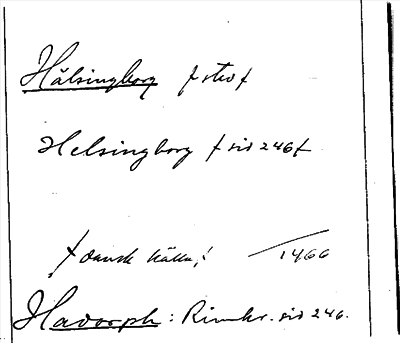 Hälsingborg f stad f
Helsingborg f sid 246 f
f dansk källa,! 1466
Hadorph: Rimkr. sid 246.